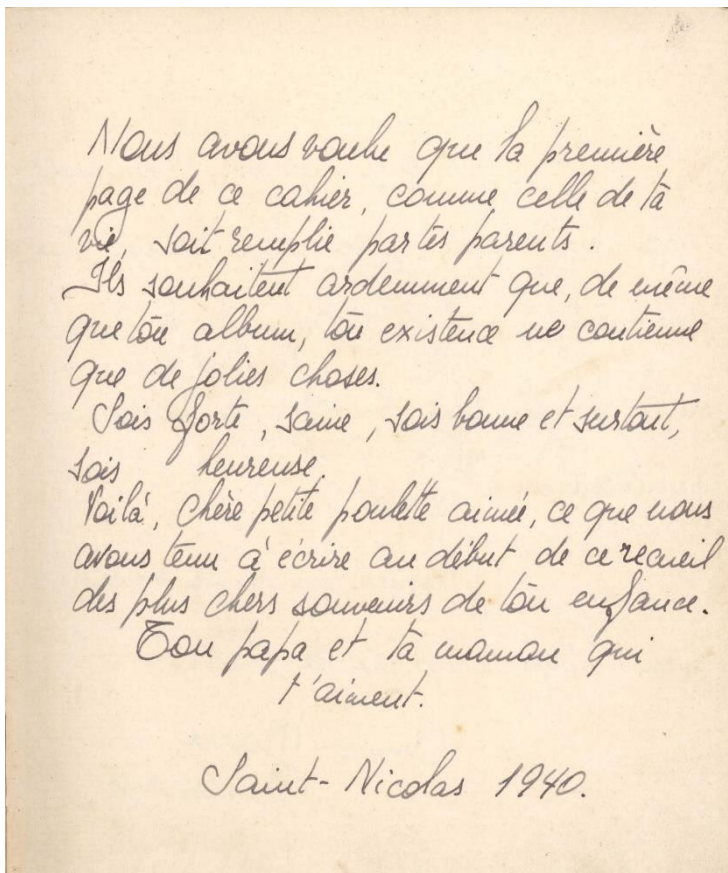 Nous avons voulu que la première
page de ce cahier, comme celle de ta
vie, soit remplie par tes parents.
Ils souhaitent ardemment que, de même
que ton album, ton existence ne contienne
que de jolies choses.
Sois forte, saine, sois bonne et surtout,
sois heureuse.
Voilà, chère petite poulette aimée, ce que nous
avons tenu à écrire au début de ce recueil
des plus chers souvenirs de ton enfance.
Ton papa et ta maman qui
t'aiment.
Saint-Nicolas 1940.